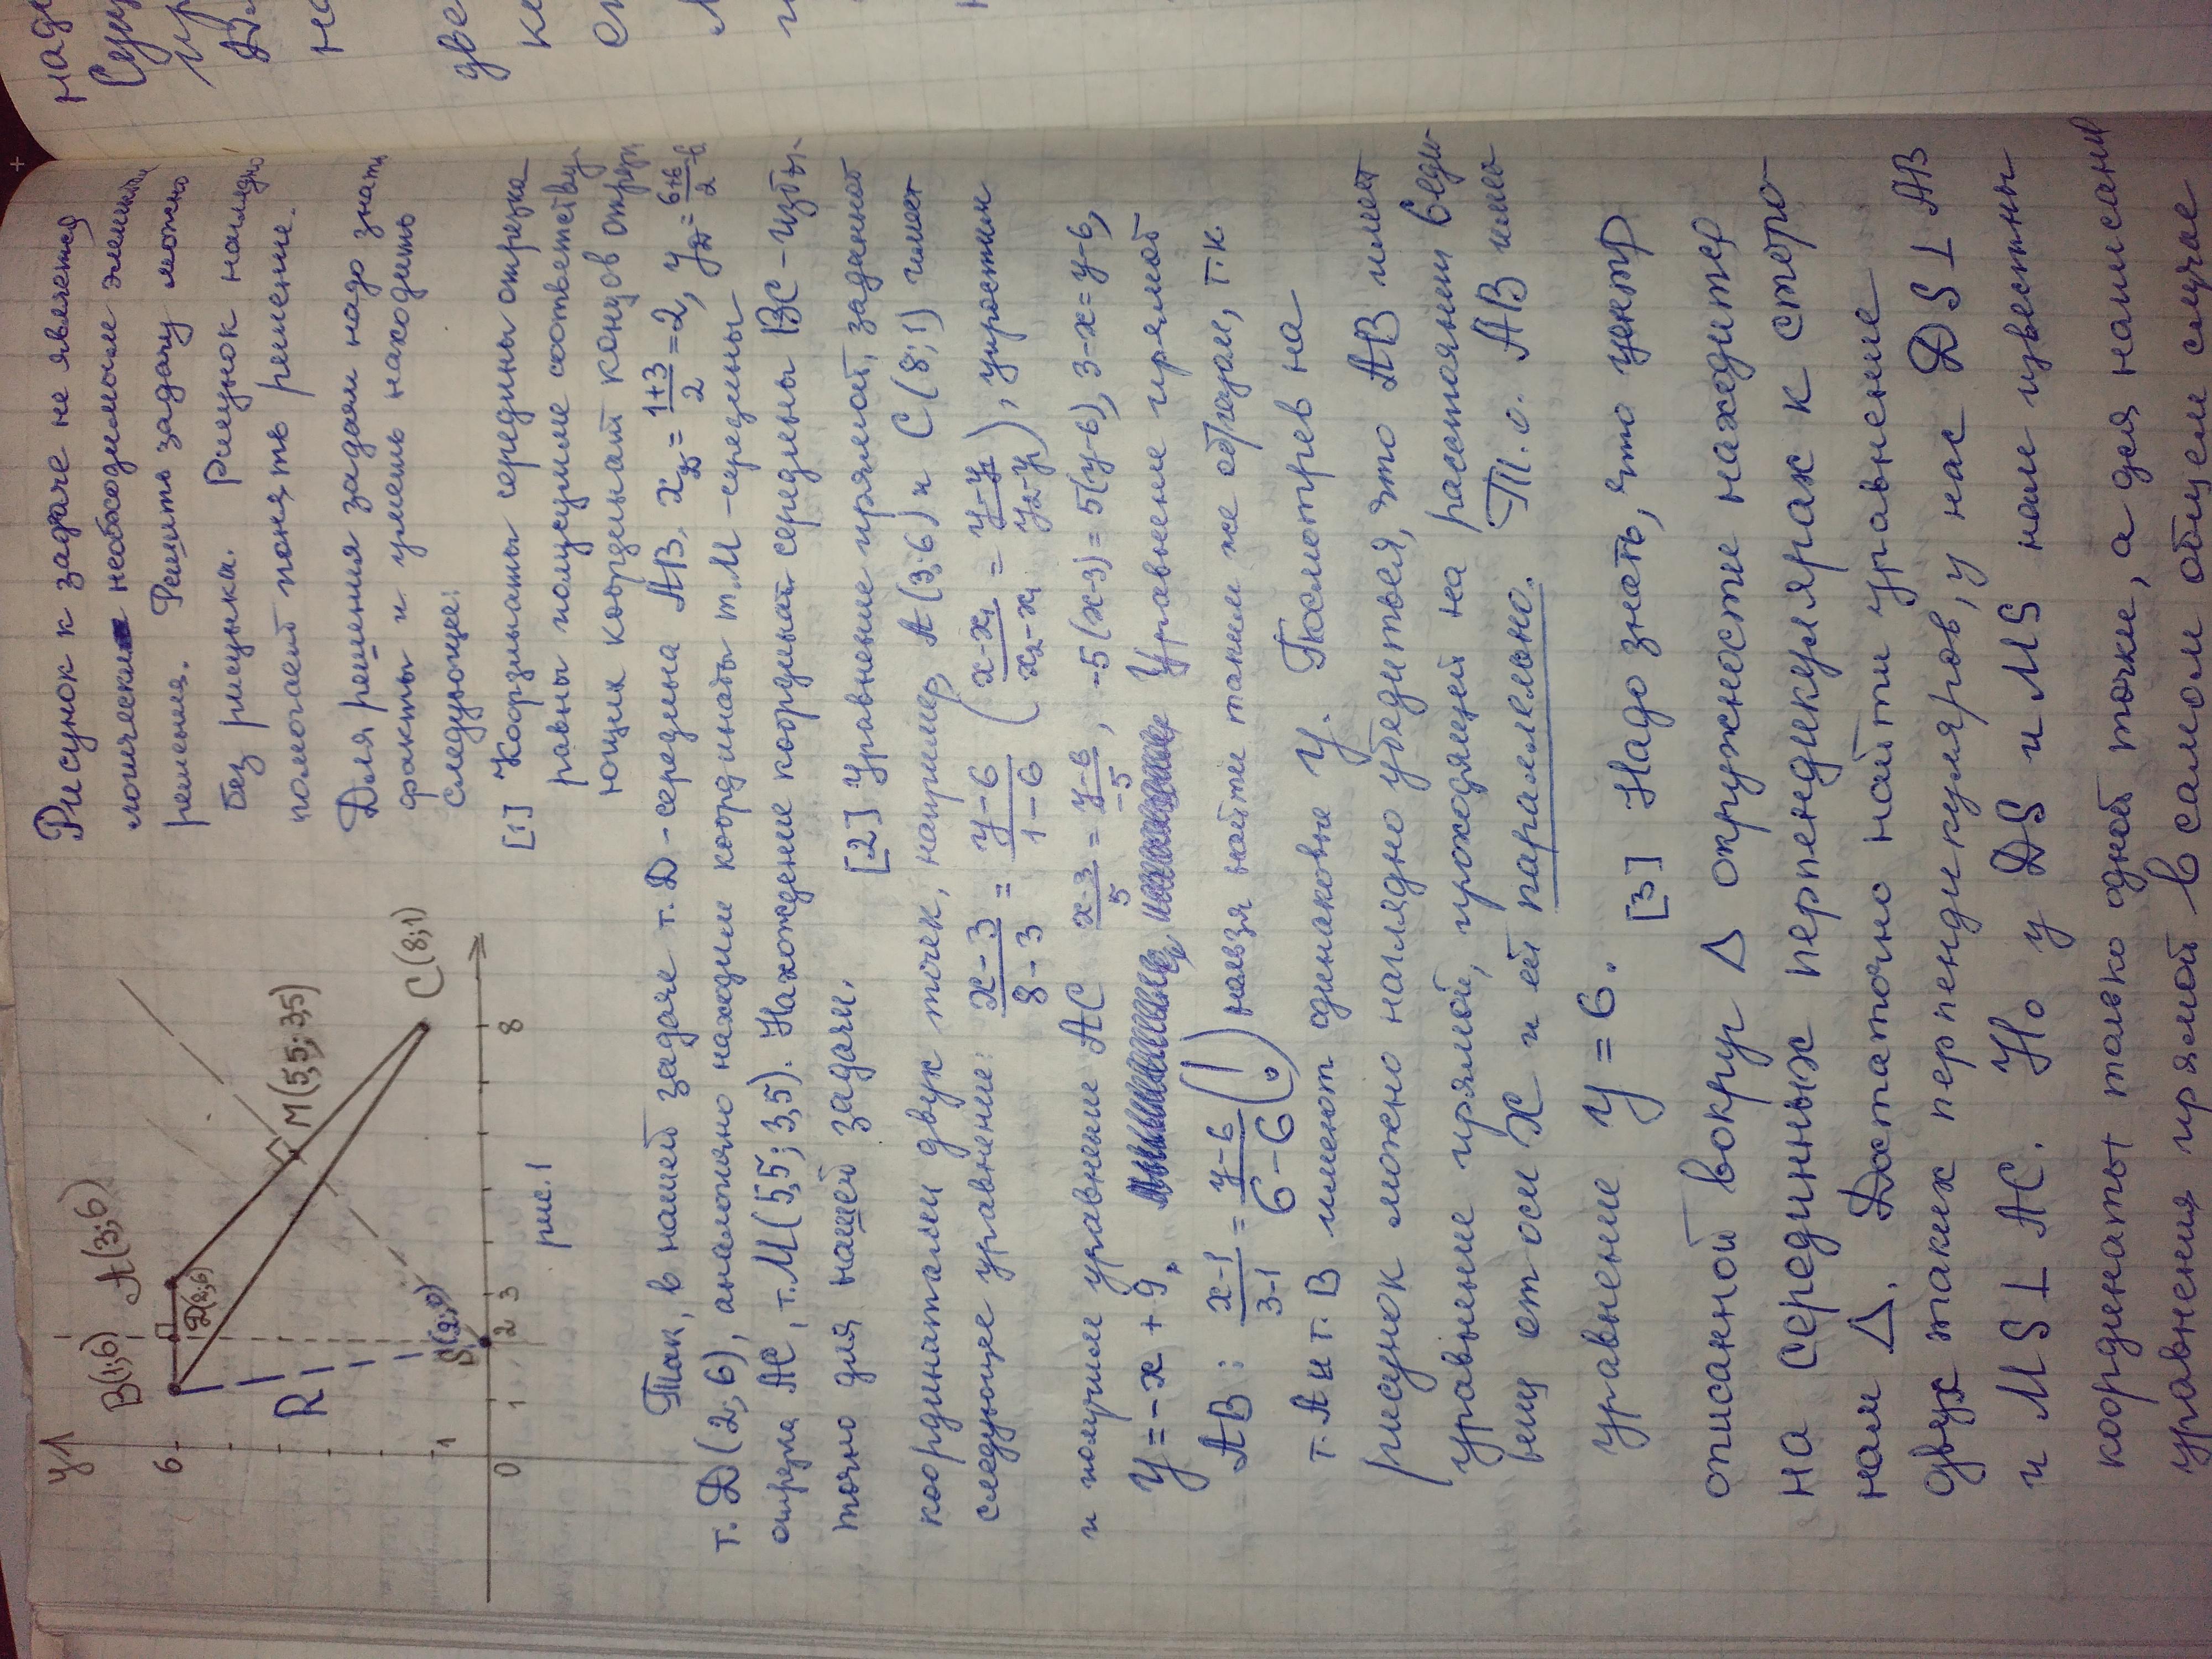 Рисунок к задаче не является
логически необходимым элементом
решения. Решить задачу можно
без рисунка. Рисунок наглядно
помогает понять решение.
Для решения задачи надо знать
факты и уметь находить
следующее:
[1] Координаты середины отрезка
равны полусумме соответству-
ющих координат концов отрез
y
6
B(1;6) A(3;6)
D(2;6)
R
M(5,5;3,5)
C(8;1)
S(2;0)
1
0 1 2 3 8
рис. 1
Так, в нашей задаче т. D - середина AB, x_D = (1+3)/2 = 2, y_D = (6+6)/2 = 6
т. D(2;6), аналогично находим координаты т. M - середины
отрезка AC, т. M(5,5; 3,5). Нахождение координат середины BC - избы-
точно для нашей задачи.
[2] Уравнение прямой, заданной
координатами двух точек, например, A(3;6) и C(8;1) имеет
следующее уравнение: (x-3)/(8-3) = (y-6)/(1-6) ((x-x₁)/(x₂-x₁) = (y-y₁)/(y₂-y₁)), упростим
и получим уравнение AC (x-3)/5 = (y-6)/-5, -5(x-3) = 5(y-6), 3-x = y-6,
y = -x + 9. Уравнение прямой
AB: (x-1)/(3-1) = (y-6)/(6-6) (!) нельзя найти таким же образом, т.к
т. A и т. B имеют одинаковые y. Посмотрев на
рисунок можно наглядно убедиться, что AB имеет
уравнение прямой, проходящей на расстоянии 6 един
ниц от оси x и ей параллельно. Т.о. AB имеет
уравнение y = 6.
[3] Надо знать, что центр
описанной вокруг Δ окружности находится
на серединных перпендикулярах к сторо-
нам Δ. Достаточно найти уравнение
двух таких перпендикуляров, у нас DS ⊥ AB
и MS ⊥ AC. Но у DS и MS нам известны
координаты только одной точки, а для написания
уравнения прямой в самом общем случае